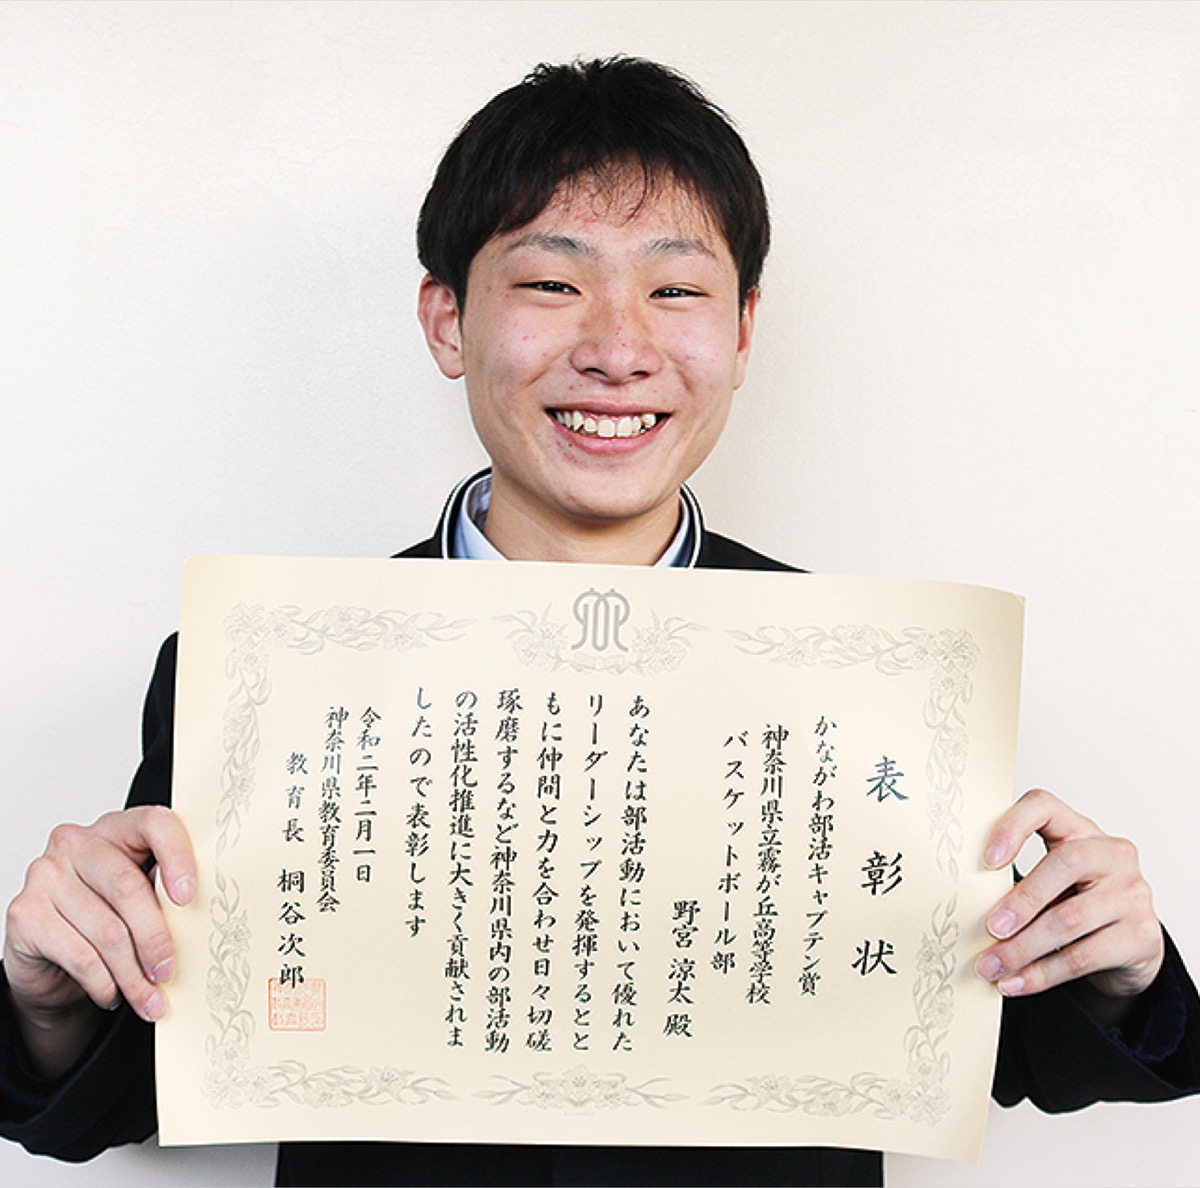 表彰状
かながわ部活キャプテン賞
神奈川県立霧が丘高等学校
バスケットボール部
野宮涼太殿
あなたは部活動において優れた
リーダーシップを発揮するとと
もに仲間と力を合わせ日々切磋
琢磨するなど神奈川県内の部活動
の活性化推進に大きく貢献されま
したので表彰します
令和二年二月一日
神奈川県教育委員会
教育長 桐谷次郎